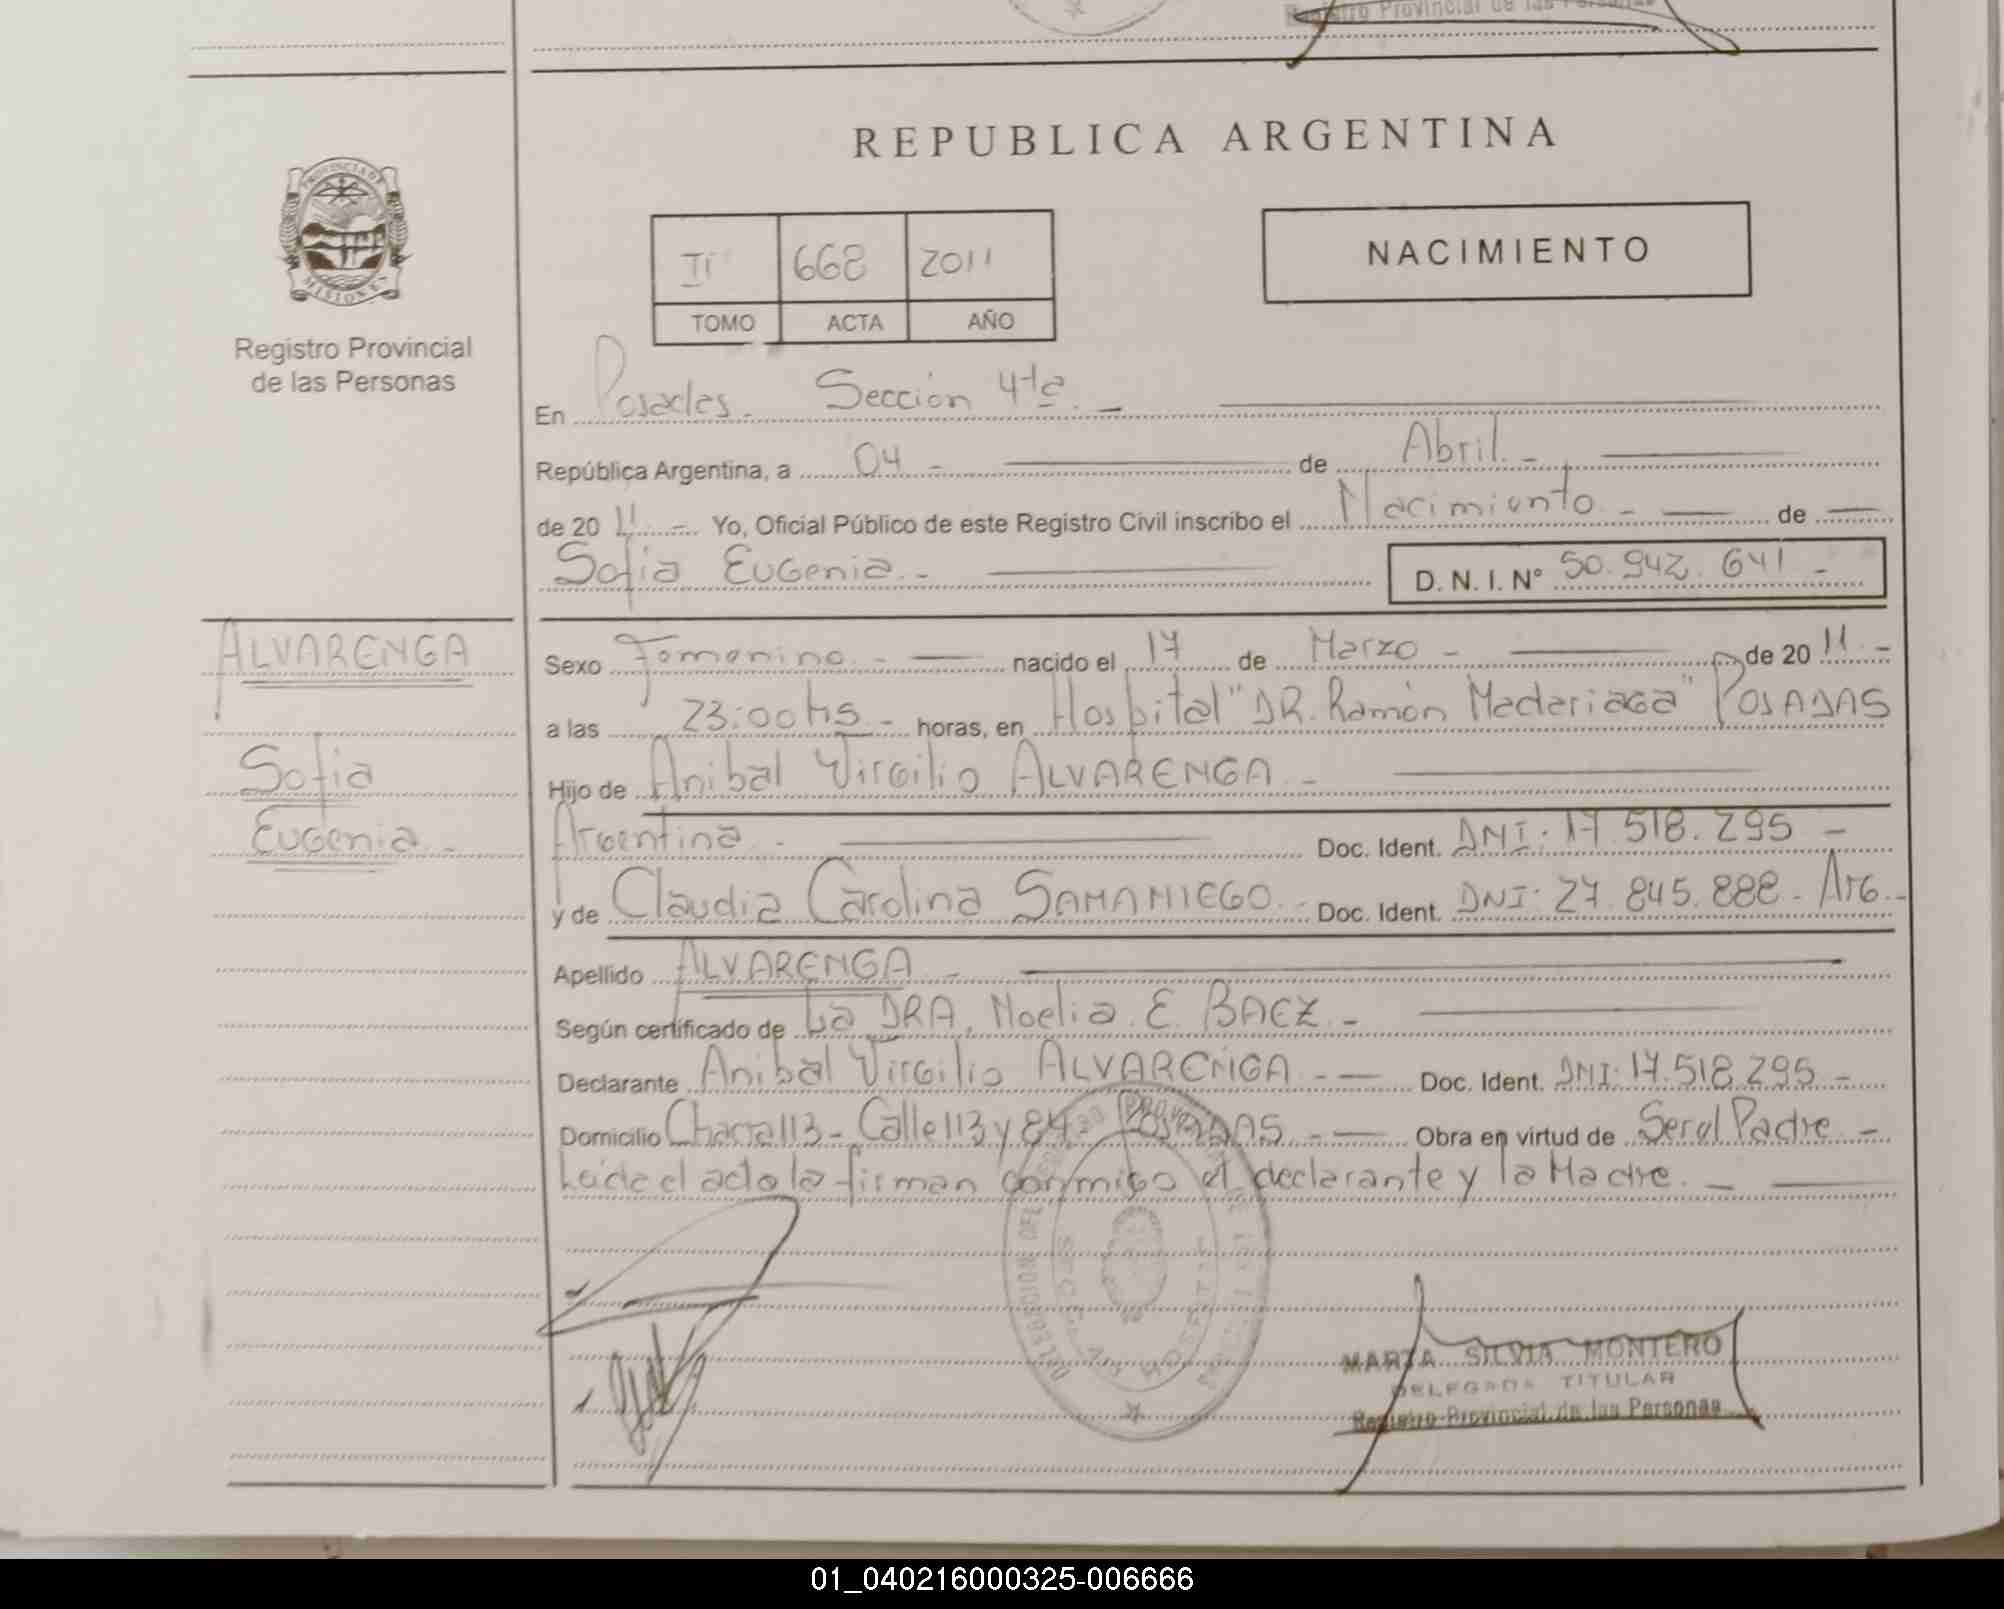 Registro Provincial de las Personas
REPUBLICA ARGENTINA
PROVINCIA DE
MISIONES
Registro Provincial
de las Personas
II 668 2011
TOMO ACTA AÑO
NACIMIENTO
En Posadas. Sección 4ta.
República Argentina, a 04 de Abril.
de 20 11 Yo, Oficial Público de este Registro Civil inscribo el Nacimiento de
Sofia Eugenia. D. N. I. N° 50.942.641
ALVARENGA
Sofia
Eugenia.
Sexo Femenino. nacido el 17 de Marzo de 20 11
a las 23:00hs horas, en Hospital "DR. Ramón Madariaga" POSADAS
Hijo de Anibal Virgilio ALVARENGA
Argentina Doc. Ident. DNI: 17.518.295
y de Claudia Carolina SAMANIEGO. Doc. Ident. DNI: 27.845.888. Arg.
Apellido ALVARENGA
Según certificado de La DRA. Noelia. E. BAEZ.
Declarante Anibal Virgilio ALVARENGA Doc. Ident. DNI: 17.518.295
Domicilio Chacra 113 - Calle 113 y 84 POSADAS Obra en virtud de Ser el Padre
Leída el acta la firman conmigo el declarante y la Madre.
MARTA SILVIA MONTERO
DELEGADA TITULAR
Registro Provincial de las Personas
01_040216000325-006666